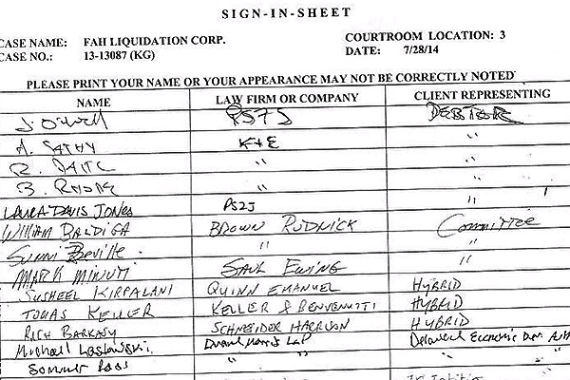 SIGN-IN-SHEET
CASE NAME: FAH LIQUIDATION CORP. COURTROOM LOCATION: 3
CASE NO.: 13-13087 (KG) DATE: 7/28/14
PLEASE PRINT YOUR NAME OR YOUR APPEARANCE MAY NOT BE CORRECTLY NOTED
NAME LAW FIRM OR COMPANY CLIENT REPRESENTING
J. O'Neill PSZJ DEBTOR
A. SATHY K+E "
R. "  "
B. " "
LAURA DAVIS JONES PSZJ "
WILLIAM BALDIGA BROWN RUDNICK Committee
Sunni Beville " "
MARK MINUTI SAUL EWING "
SUSHEEL KIRPALANI QUINN EMANUEL HYBRID
TOBIAS KELLER KELLER & BENVENUTTI HYBRID
RICH BARKASY SCHNADER HARRISON HYBRID
Michael Lastowski Duane Morris LLP Delaware Economic Dev Auth
Sommer Ross " "